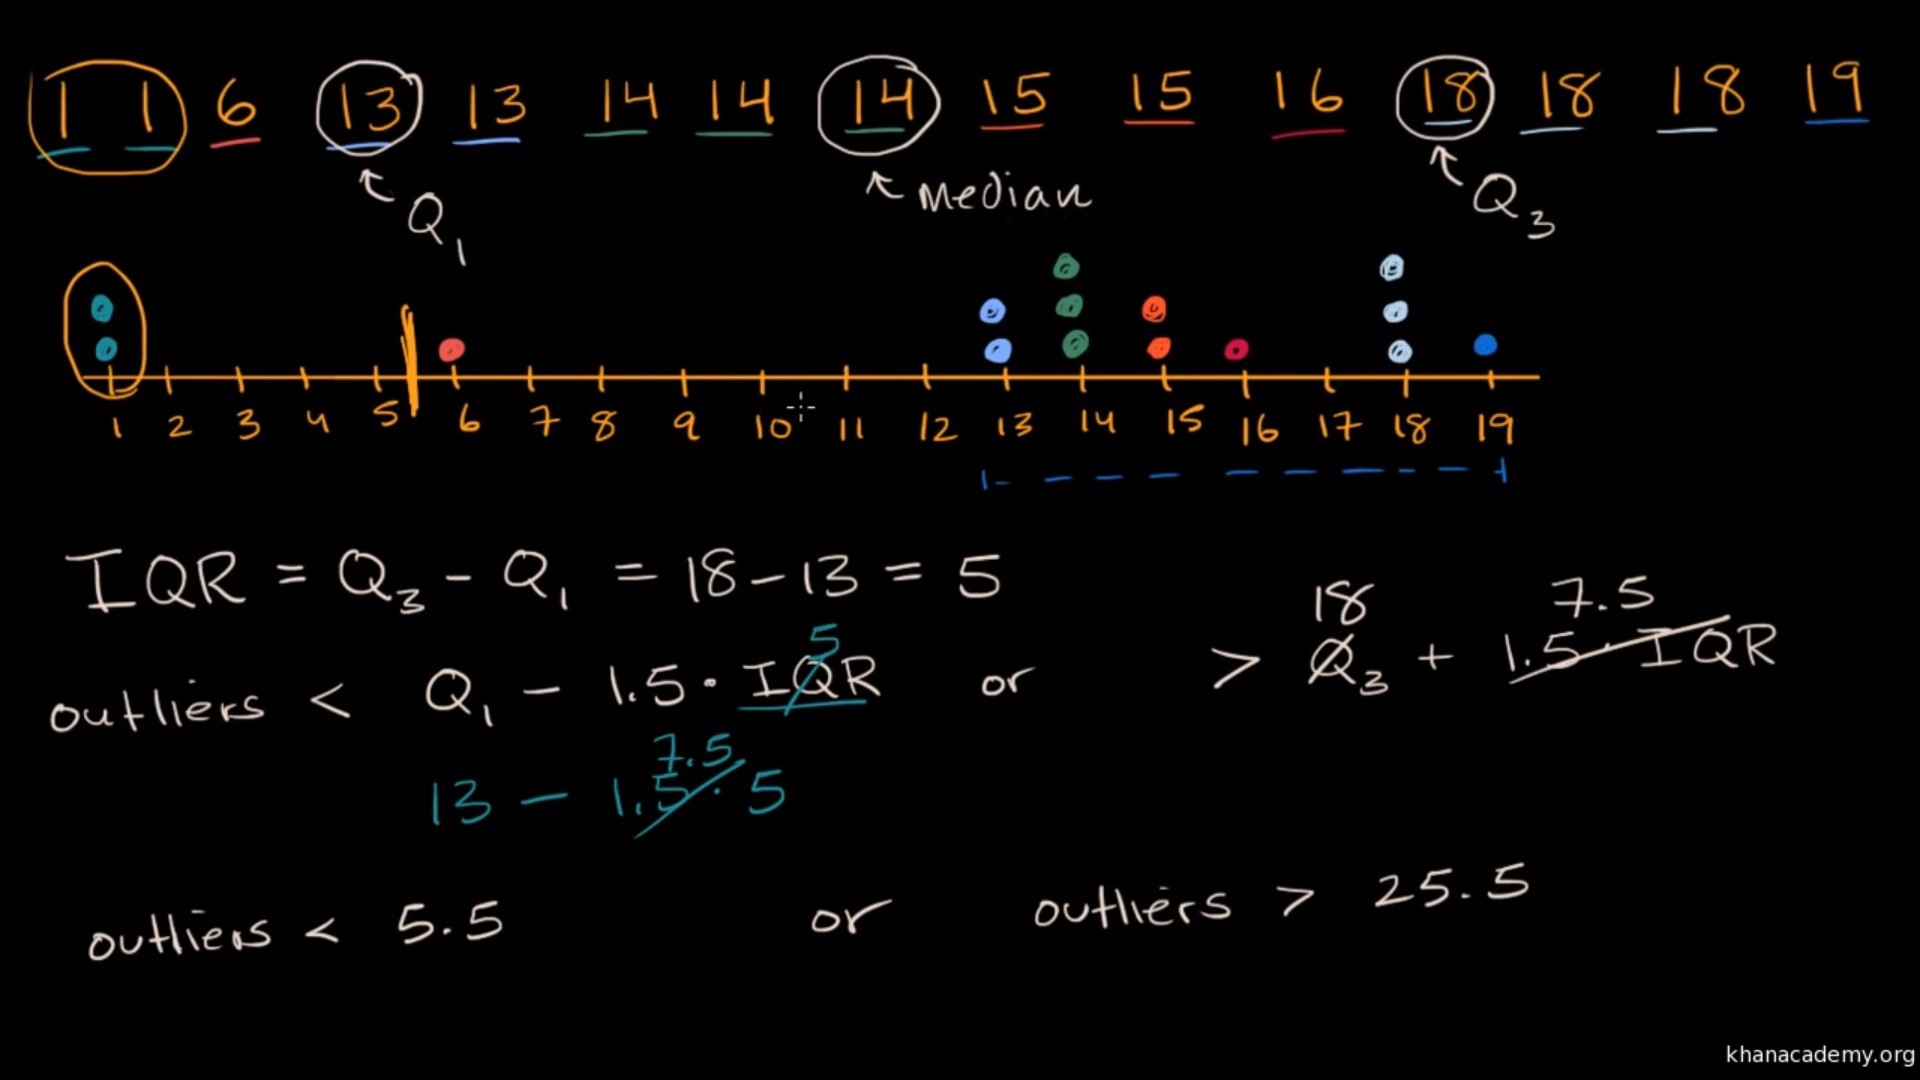 1 1 6 13 13 14 14 14 15 15 16 18 18 18 19
Q1 Median Q3
1 2 3 4 5 6 7 8 9 10 11 12 13 14 15 16 17 18 19
IQR = Q3 - Q1 = 18 - 13 = 5
5 18 7.5
outliers < Q1 - 1.5 · IQR or > Q3 + 1.5 · IQR
7.5
13 - 1.5 · 5
outliers < 5.5 or outliers > 25.5
khanacademy.org